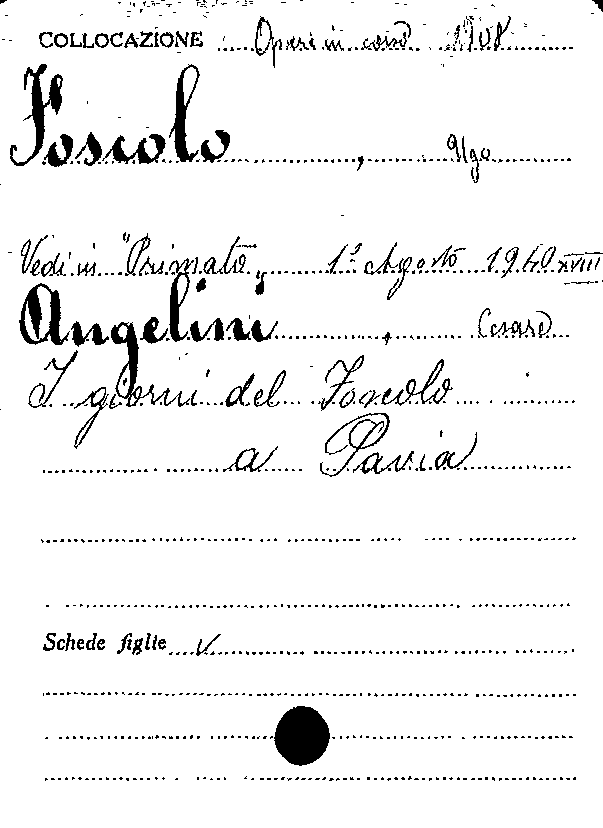 COLLOCAZIONE Opere in corso 1908
Foscolo, Ugo
Vedi in "Primato" 1º Agosto 1940 XVIII
Angelini, Cesare
I giorni del Foscolo
a Pavia
Schede figlie V